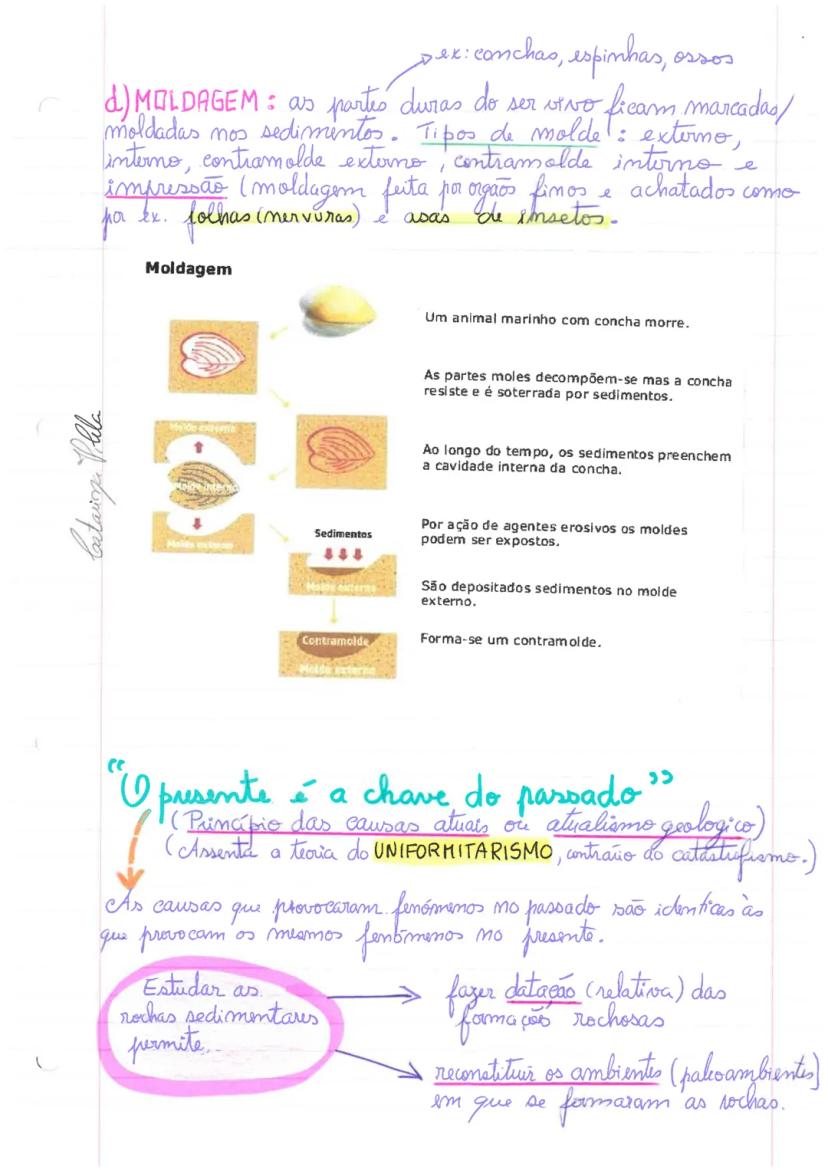 ex: conchas, espinhas, ossos
d) MOLDAGEM : as partes duras do ser vivo ficam marcadas/
moldadas nos sedimentos. Tipos de molde : externo,
interno, contramolde externo, contramolde interno e
impressão (moldagem feita por orgãos finos e achatados como
por ex. folhas (nervuras) e asas de insetos.
Moldagem
Um animal marinho com concha morre.
As partes moles decompõem-se mas a concha
resiste e é soterrada por sedimentos.
Molde externo
Ao longo do tempo, os sedimentos preenchem
a cavidade interna da concha.
Molde interno
Molde externo
Por ação de agentes erosivos os moldes
podem ser expostos.
Sedimentos
Molde externo
São depositados sedimentos no molde
externo.
Contramolde
Molde externo
Forma-se um contramolde.
"O presente é a chave do passado"
(Princípio das causas atuais ou atualismo geologico)
(Assenta a teoria do UNIFORMITARISMO, contrário do catastrofismo.)
As causas que provocaram fenómenos no passado são identicas às
que provocam os mesmos fenómenos no presente.
Estudar as
rochas sedimentares
permite...
fazer datação (relativa) das
formações rochosas
reconstituir os ambientes (paleoambientes)
em que se formaram as rochas.